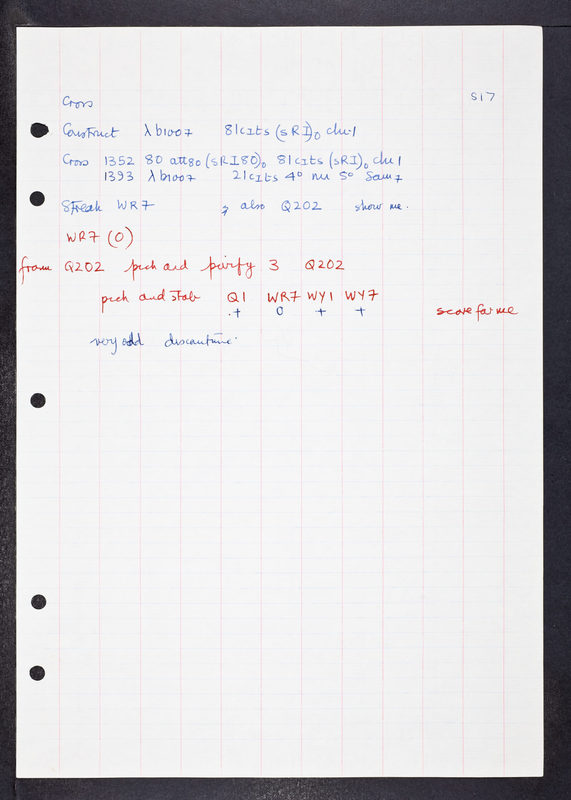 Cross
S17
Construct λb1007 81cIts (sRI)₀ chi.1
Cross 1352 80 att80 (sRI80)₀ 81cIts (sRI)₀ chi 1
1393 λb1007 21cIts 4° nu 5° Sam7
Streak WR7 also Q202 show me.
WR7 (0)
from Q202 pick and purify 3 Q202
pick and stab Q1 WR7 WY1 WY7
+ 0 + +
score for me
very odd discontinue.